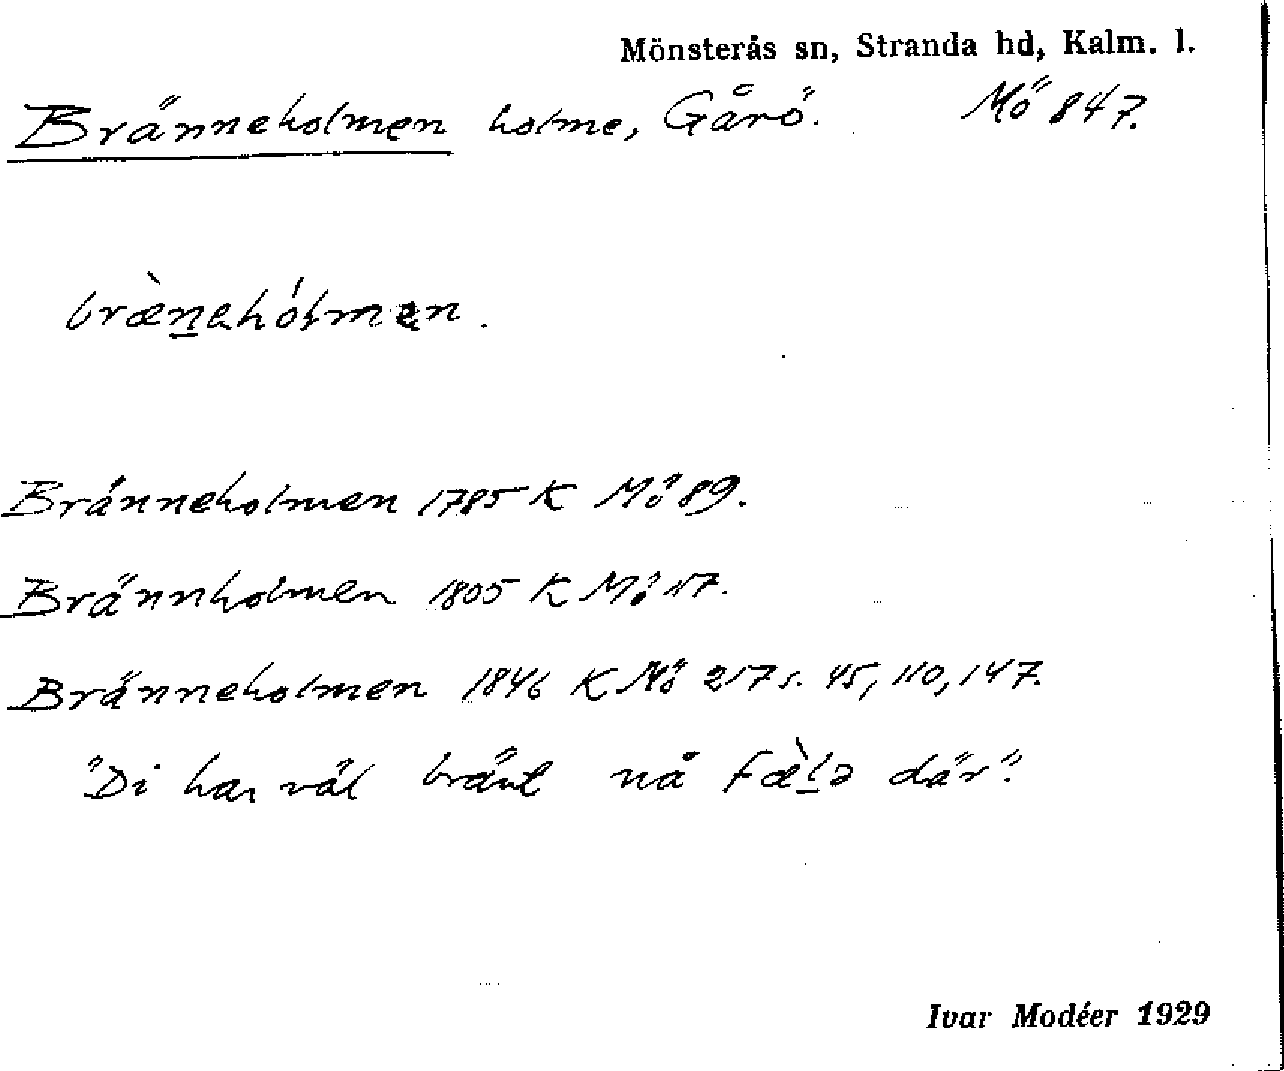 Mönsterås sn, Stranda hd, Kalm. l.
Bränneholmen holme, Gårö. Mö 847.
bræ̀n̲ehólmen.
Bränneholmen 1785 K Mö 89.
Brännholmen 1805 K Mö 117.
Bränneholmen 1846 K Mö 217 s. 45, 110, 147.
"Di har väl bränt nå fæ̀l̲ə där".
Ivar Modéer 1929